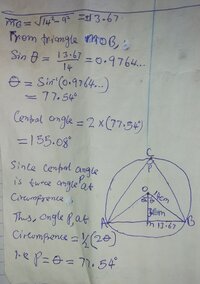 MB = √14² - 9² = 13.67
From triangle MOB,
Sin θ = 13.67/14 = 0.9764...
θ = Sin⁻¹(0.9764...)
= 77.54°
Central angle = 2 × (77.54°)
= 155.08°
Since Central angle
is twice angle at
Circumfrence,
Thus, angle P at
Circumfrence = ½(2θ)
i.e P = θ = 77.54°
C
P
O
14cm
θ
A
m
13.67
B